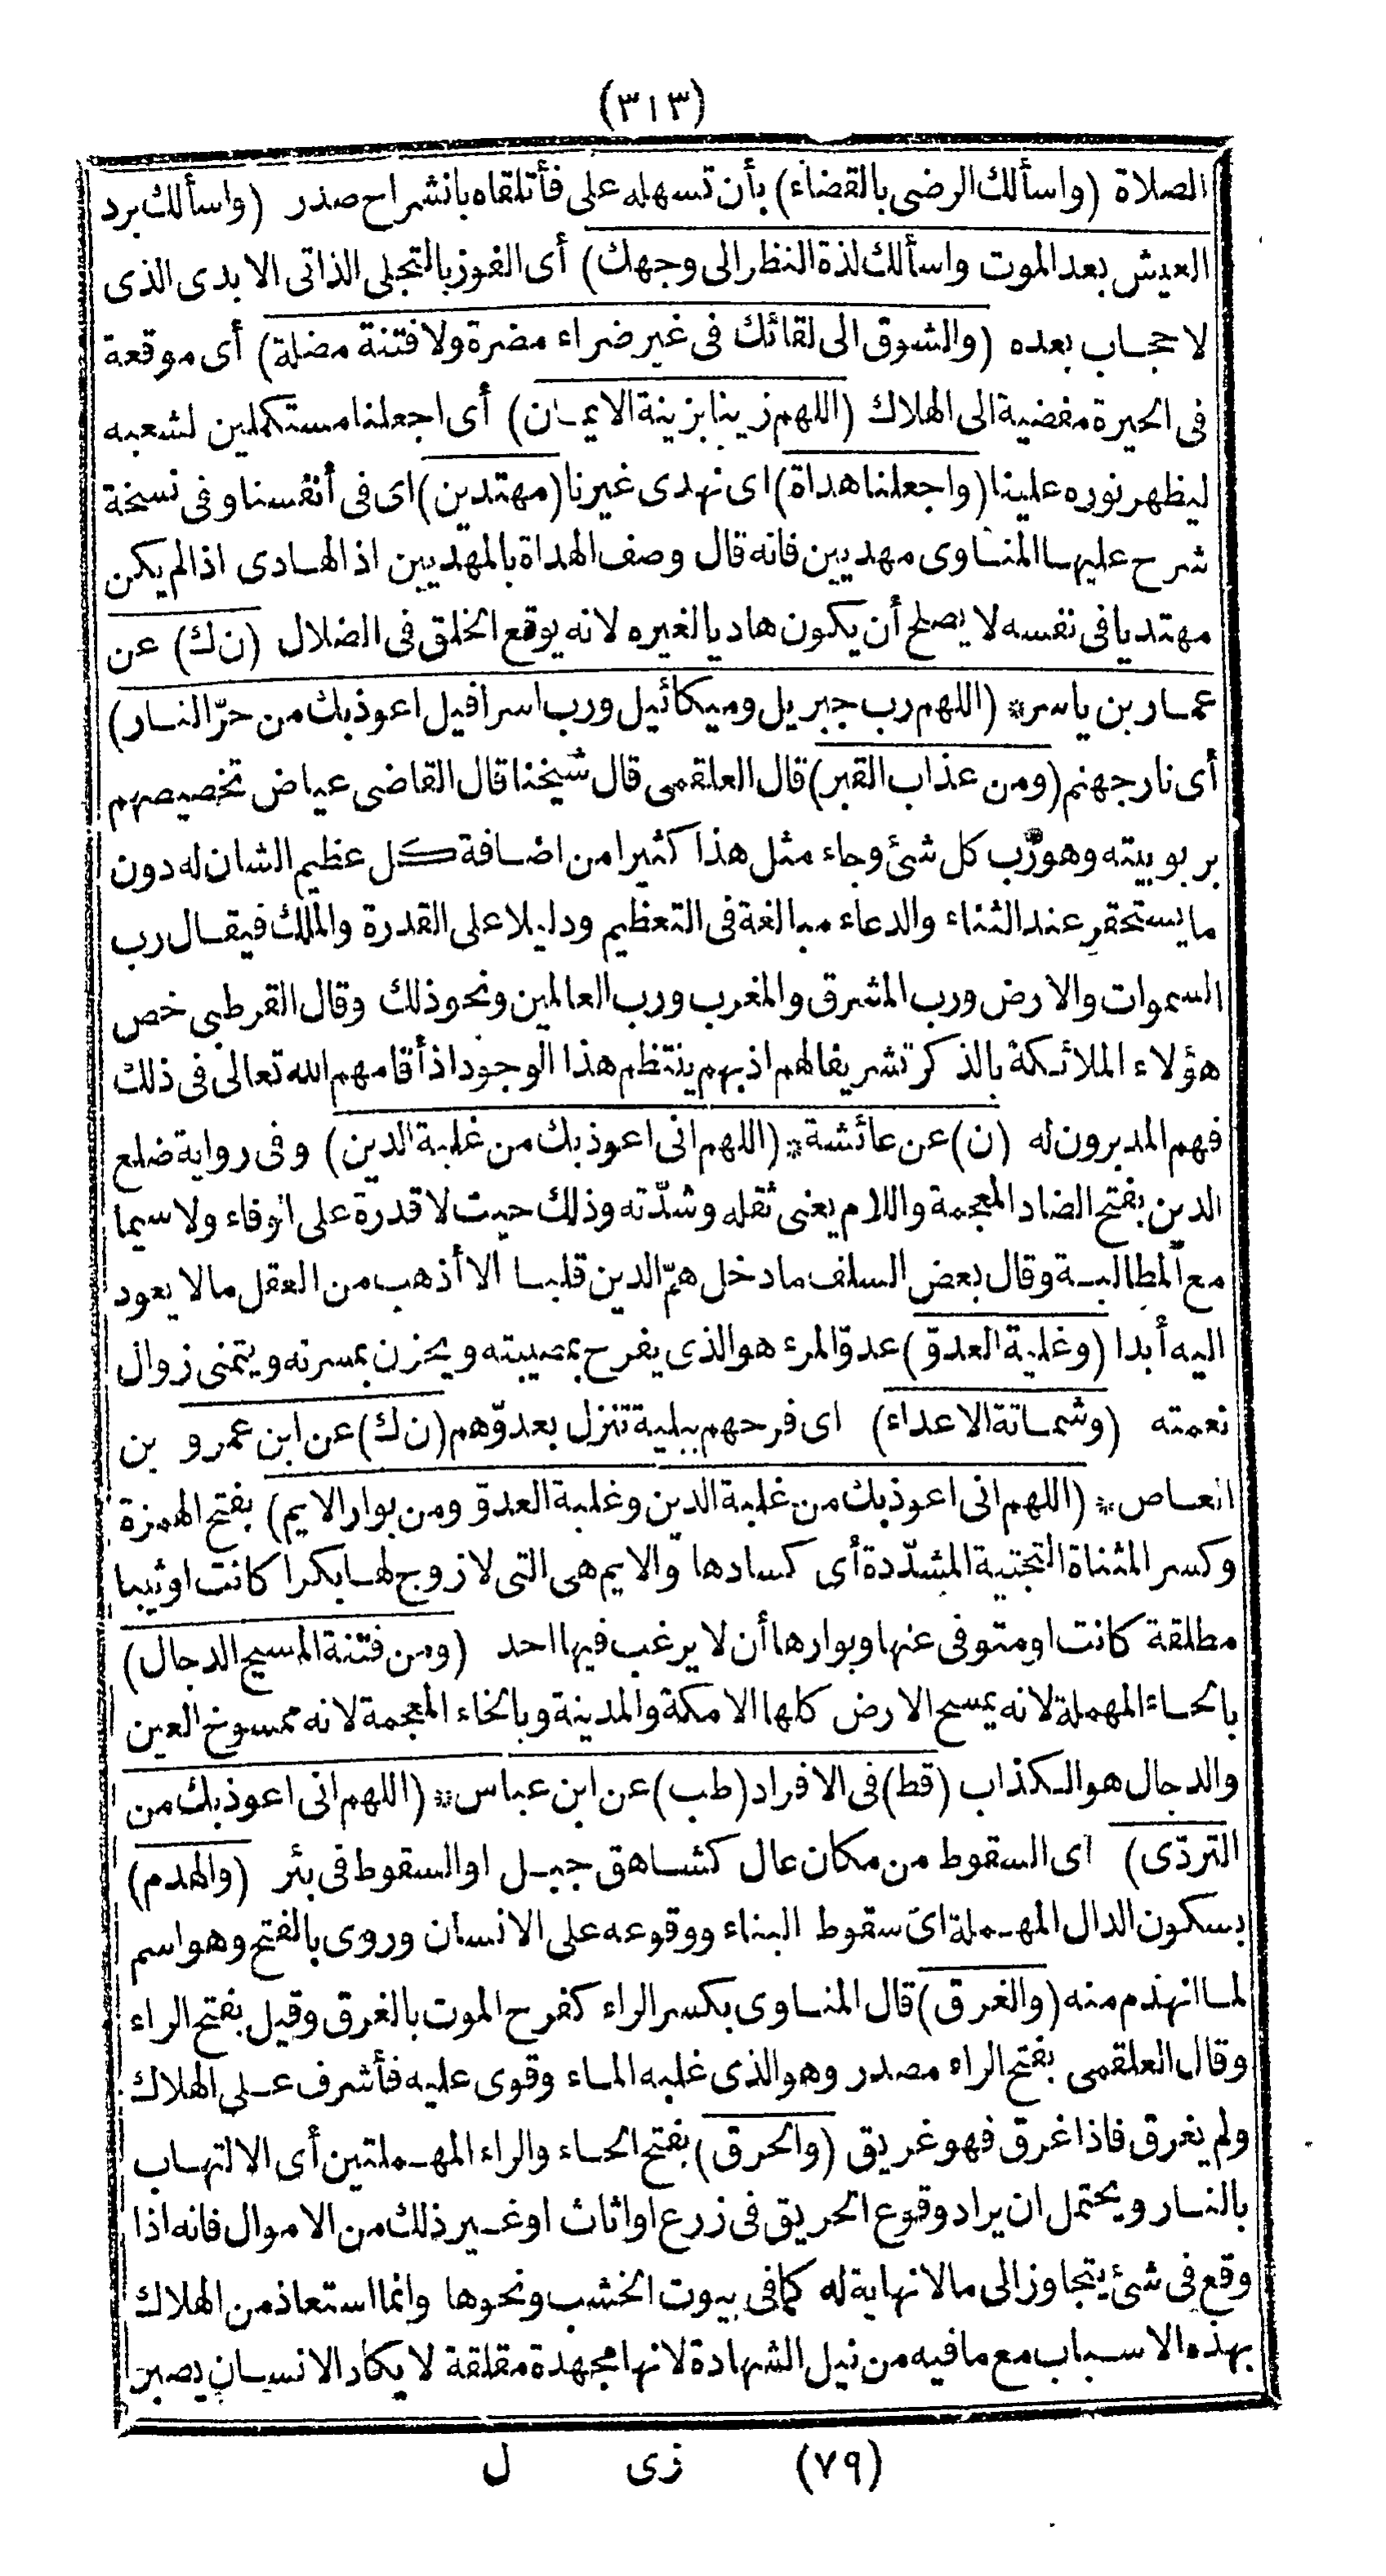 (٣١٣)
الصلاة (واسألك الرضى بالقضاء) بأن تسهله على فأتلقاه بانشراح صدر (واسألك برد
العيش بعد الموت واسألك لذة النظر الى وجهك) أى الفوز بالتجلى الذاتى الابدى الذى
لا حجاب بعده (والشوق الى لقائك فى غير ضراء مضرة ولا فتنة مضلة) أى موقعة
فى الحيرة مفضية الى الهلاك (اللهم زينا بزينة الايمان) أى اجعلنا مستكملين لشعبه
ليظهر نوره علينا (واجعلنا هداة) اى نهدى غيرنا (مهتدين) اى فى أنفسنا وفى نسخة
شرح عليها المناوى مهديين فانه قال وصف الهداة بالمهديين اذ الهادى اذا لم يكن
مهتديا فى نفسه لا يصلح أن يكون هاديا لغيره لانه يوقع الخلق فى الضلال (ن ك) عن
عمار بن ياسر* (اللهم رب جبريل وميكائيل ورب اسرافيل اعوذ بك من حرّ النار)
أى نار جهنم (ومن عذاب القبر) قال العلقمى قال شيخنا قال القاضى عياض تخصيصهم
بربوبيته وهو رب كل شئ وجاء مثل هذا كثيرا من اضافة كل عظيم الشان له دون
ما يستحقر عند الثناء والدعاء مبالغة فى التعظيم ودليلا على القدرة والملك فيقال رب
السموات والارض ورب المشرق والمغرب ورب العالمين ونحو ذلك وقال القرطبى خص
هؤلاء الملائكة بالذكر تشريفا لهم اذ بهم ينتظم هذا الوجود اذ أقامهم الله تعالى فى ذلك
فهم المدبرون له (ن) عن عائشة* (اللهم انى اعوذ بك من غلبة الدين) وفى رواية ضلع
الدين بفتح الضاد المعجمة واللام يعنى ثقله وشدّته وذلك حيث لا قدرة على الوفاء ولا سيما
مع المطالبة وقال بعض السلف ما دخل همّ الدين قلبا الا أذهب من العقل ما لا يعود
اليه أبدا (وغلبة العدوّ) عدوّ المرء هو الذى يفرح بمصيبته ويحزن بمسرته ويتمنى زوال
نعمته (وشماتة الاعداء) اى فرحهم ببلية تنزل بعدوّهم (ن ك) عن ابن عمرو بن
العاص* (اللهم انى اعوذ بك من غلبة الدين وغلبة العدوّ ومن بوار الايم) بفتح الهمزة
وكسر المثناة التحتية المشدّدة أى كسادها والايم هى التى لا زوج لها بكرا كانت او ثيبا
مطلقة كانت او متوفى عنها وبوارها أن لا يرغب فيها احد (ومن فتنة المسيح الدجال)
بالحاء المهملة لانه يمسح الارض كلها الا مكة والمدينة وبالخاء المعجمة لانه ممسوخ العين
والدجال هو الكذاب (قط) فى الافراد (طب) عن ابن عباس* (اللهم انى اعوذ بك من
التردّى) اى السقوط من مكان عال كشاهق جبل او السقوط فى بئر (والهدم)
بسكون الدال المهملة اى سقوط البناء ووقوعه على الانسان وروى بالفتح وهو اسم
لما انهدم منه (والغرق) قال المناوى بكسر الراء كفرح الموت بالغرق وقيل بفتح الراء
وقال العلقمى بفتح الراء مصدر وهو الذى غلبه الماء وقوى عليه فأشرف على الهلاك
ولم يغرق فاذا غرق فهو غريق (والحرق) بفتح الحاء والراء المهملتين أى الالتهاب
بالنار ويحتمل ان يراد وقوع الحريق فى زرع او اثاث او غير ذلك من الاموال فانه اذا
وقع فى شئ يتجاوز الى ما لا نهاية له كما فى بيوت الخشب ونحوها وانما استعاذ من الهلاك
بهذه الاسباب مع ما فيه من نيل الشهادة لانها مجهدة مقلقة لا يكاد الانسان يصبر
(٧٩) زى ل